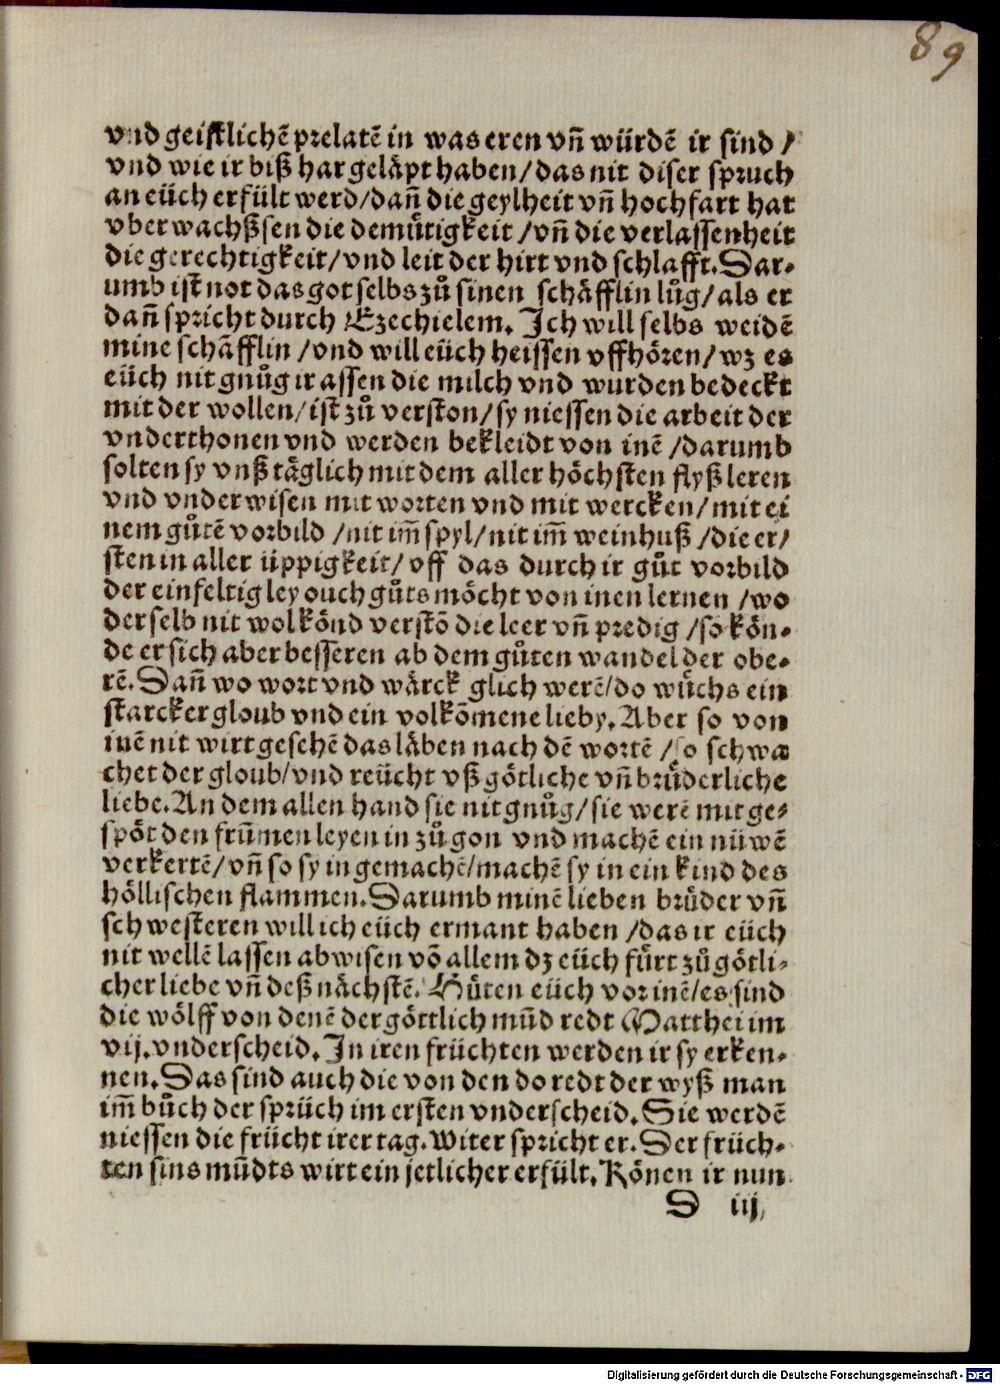 89
vnd geistlichē prelatē in was eren vñ würdē ir sind /
vnd wie ir biß har geläpt haben / das nit diser spruch
an eüch erfült werd / dañ die geylheit vñ hochfart hat
vber wachßsen die demůtigkeit / vñ die verlassenheit
die gerechtigkeit / vnd leit der hirt vnd schlafft. Dar⸗
umb ist not das got selbs zů sinen schäfflin lůg / als er
dañ spricht durch Ezechielem. Ich will selbs weidē
mine schäfflin / vnd will eüch heissen vffhören / wz es
eüch nit gnůg ir assen die milch vnd wurden bedeckt
mit der wollen / ist zů verston / sy niessen die arbeit der
vnderthonen vnd werden bekleidt von inē / darumb
solten sy vnß täglich mit dem aller höchsten flyß leren
vnd vnderwisen mit worten vnd mit wercken / mit ei
nem gůtē vorbild / nit im̄ spyl / nit im̄ weinhuß / die er /
sten in aller üppigkeit / vff das durch ir gůt vorbild
der einfeltig ley ouch gůts möcht von inen lernen / wo
der selb nit wol könd verstō die leer vñ predig / so kön⸗
de er sich aber besseren ab dem gůten wandel der obe⸗
rē. Dañ wo wort vnd wärck glich werē / do wůchs ein
starcker gloub vnd ein volkōmene lieby. Aber so von
inē nit wirt gesehē das läben nach dē wortē / so schwa
chet der gloub / vnd reücht vß götliche vñ brůderliche
liebe. An dem allen hand sie nit gnůg / sie werē mit ge⸗
spöt den frūmen leyen in zů gon vnd machē ein nüwē
verkertē / vñ so sy in gemachē / machē sy in ein kind des
höllischen flammen. Darumb minē lieben brůder vñ
schwesteren will ich eüch ermant haben / das ir eüch
nit wellē lassen abwisen vō allem dz eüch fůrt zů götli⸗
cher liebe vñ deß nächstē. Hůten eüch vor inē / es sind
die wölff von denē der göttlich mūd redt Matthei im
vij. vnderscheid. In iren früchten werden ir sy erken⸗
nen. Das sind auch die von den do redt der wyß man
im̄ bůch der sprüch im ersten vnderscheid. Sie werdē
niessen die frücht irer tag. Witer spricht er. Der früch⸗
ten sins mūdts wirt ein jetlicher erfült. Könen ir nun
D iij
Digitalisierung gefördert durch die Deutsche Forschungsgemeinschaft - DFG